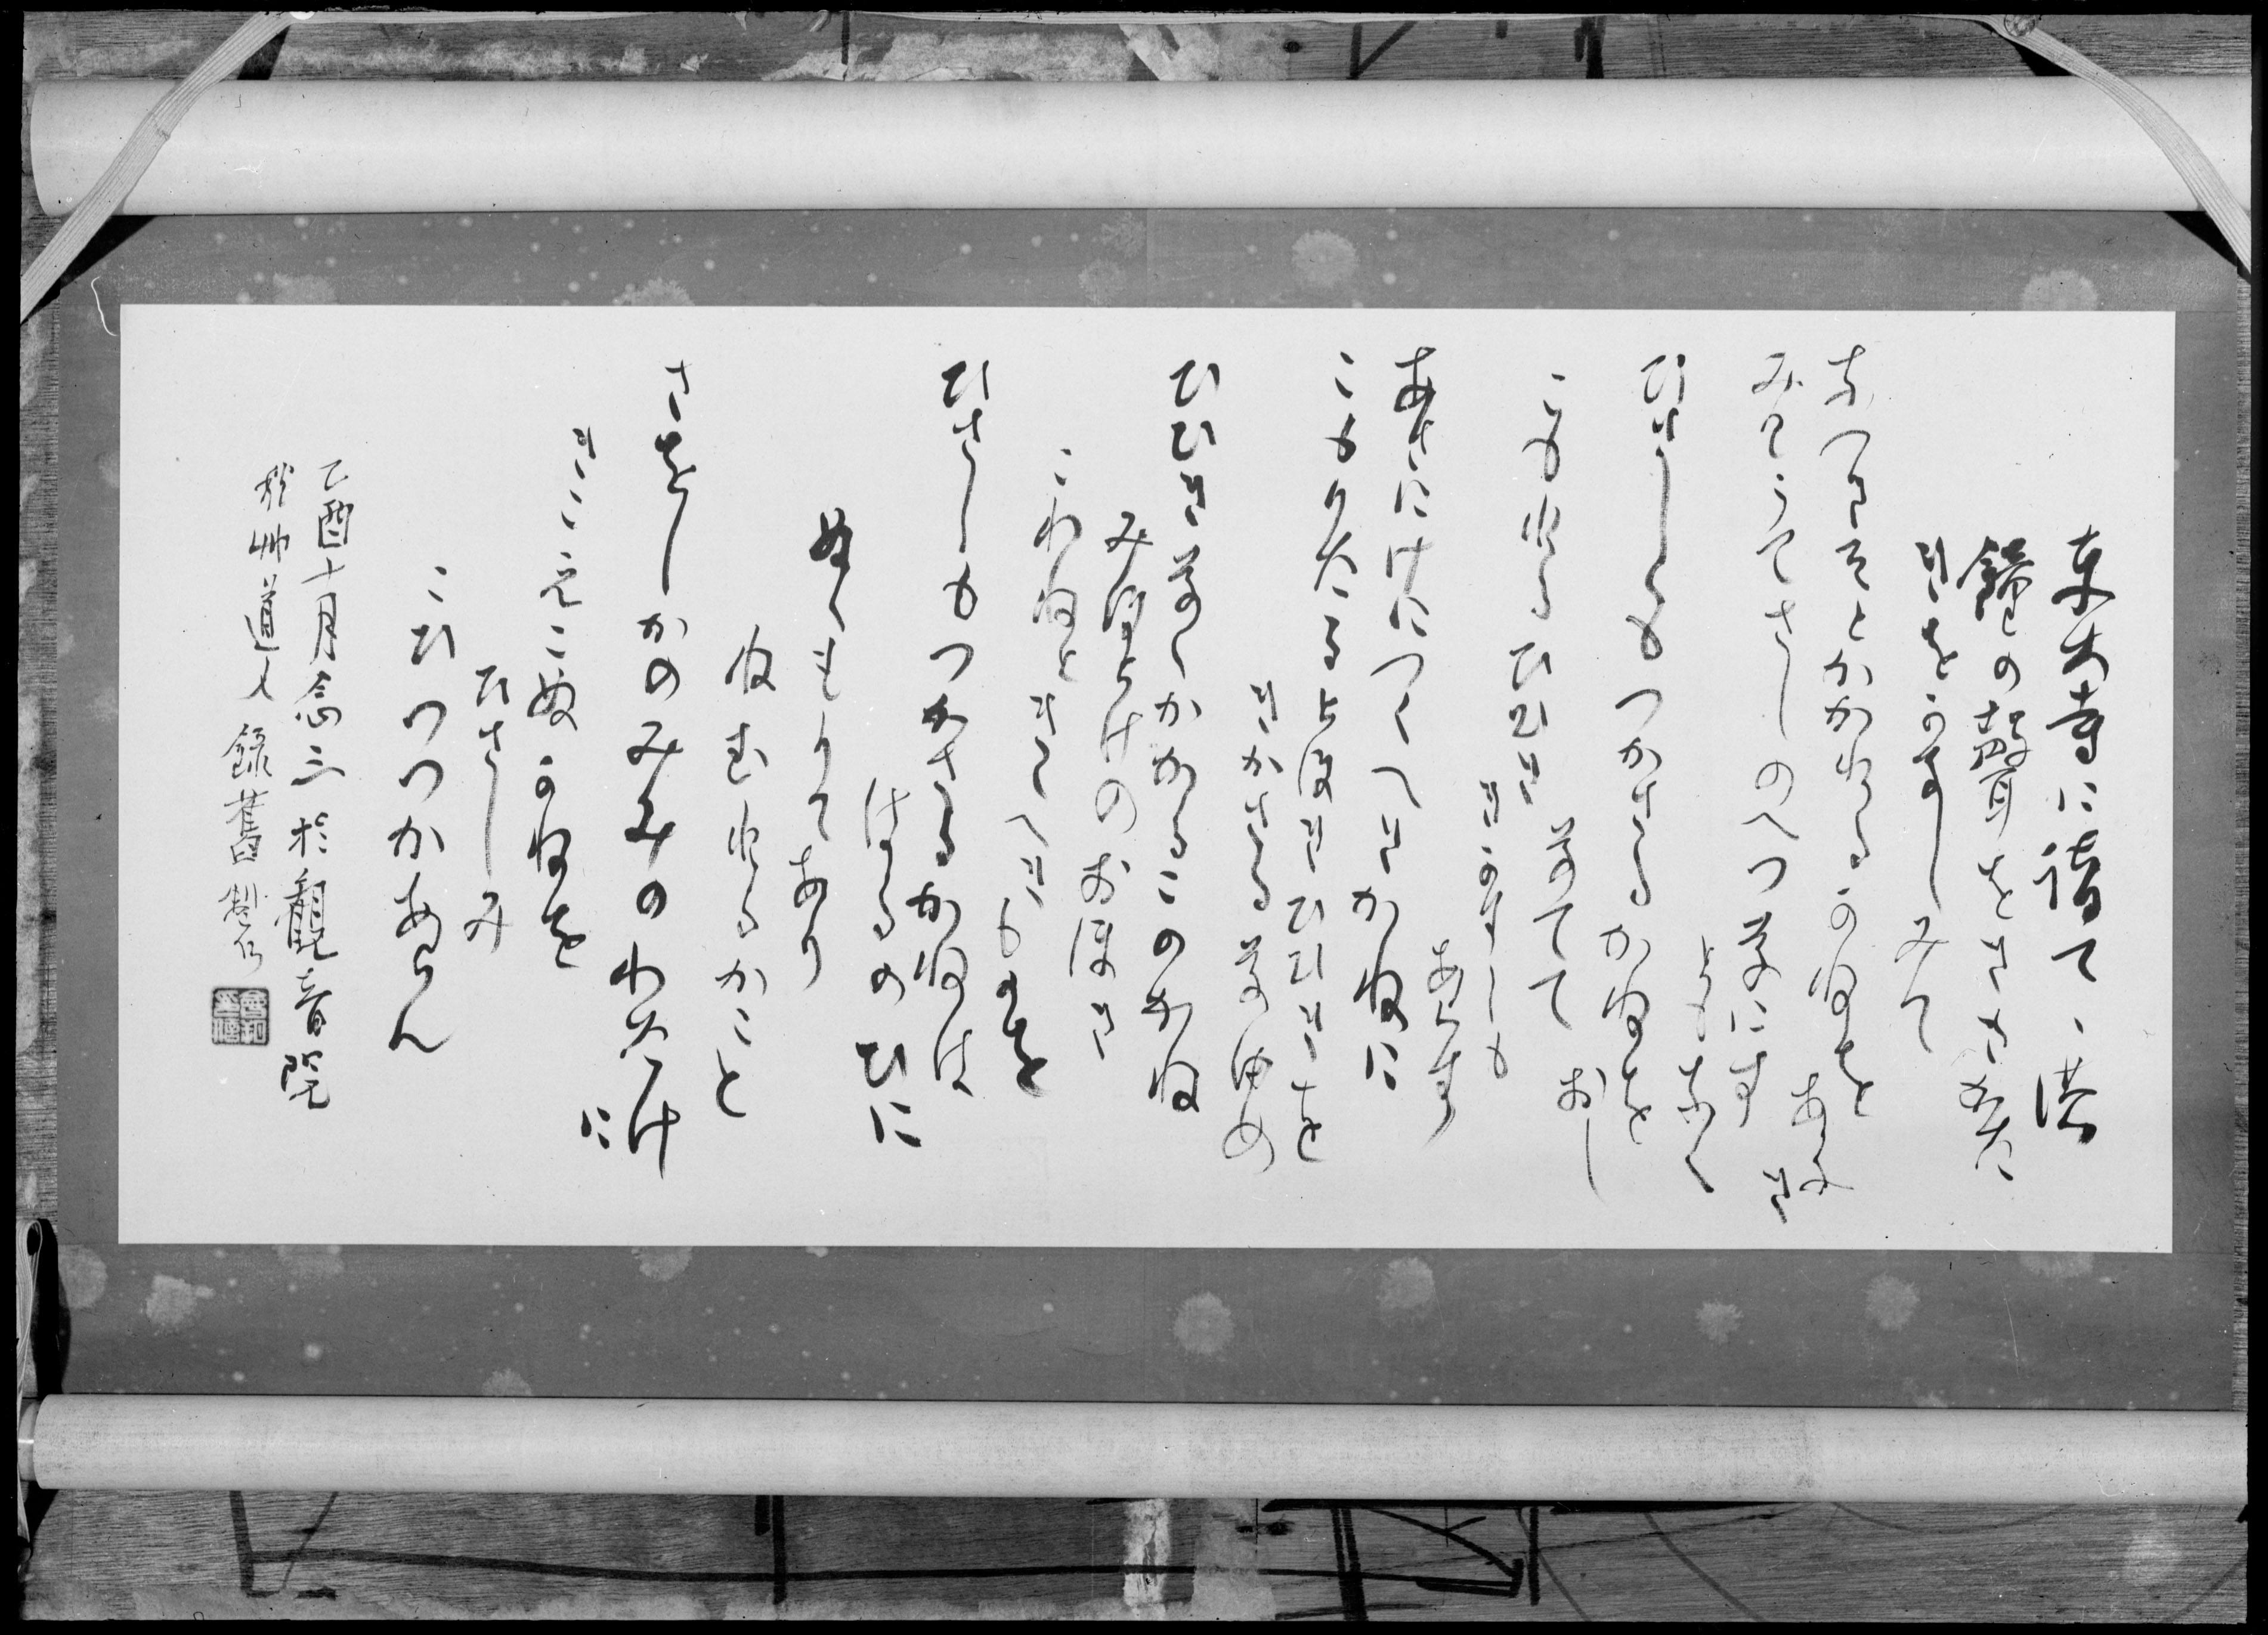 東大寺に詣てゝ洪
鐘の聲をき
をかなしみて
なつきそとかかれるかねをあふき
みてうてさしのへつなにす
ともなく
ひさしくもつかさるかねを
おしなてて
こもれるひひき
きかすしも
あらす
あさにけにつくへきかねに
こもりたるとほきひひきを
きかさるなゆめ
ひひきなくかかるこのかね
みほとけのおほき
こわねときくへきものを
ひさしくもつかさるかねは
はるのひに
ぬくもりてあり
ねむれるかこと
さをしかのみみのわたけに
きこえこぬかねを
ひさしみ
こひつつかあらん
乙酉十月念三於觀音院
秋艸道人錄舊製